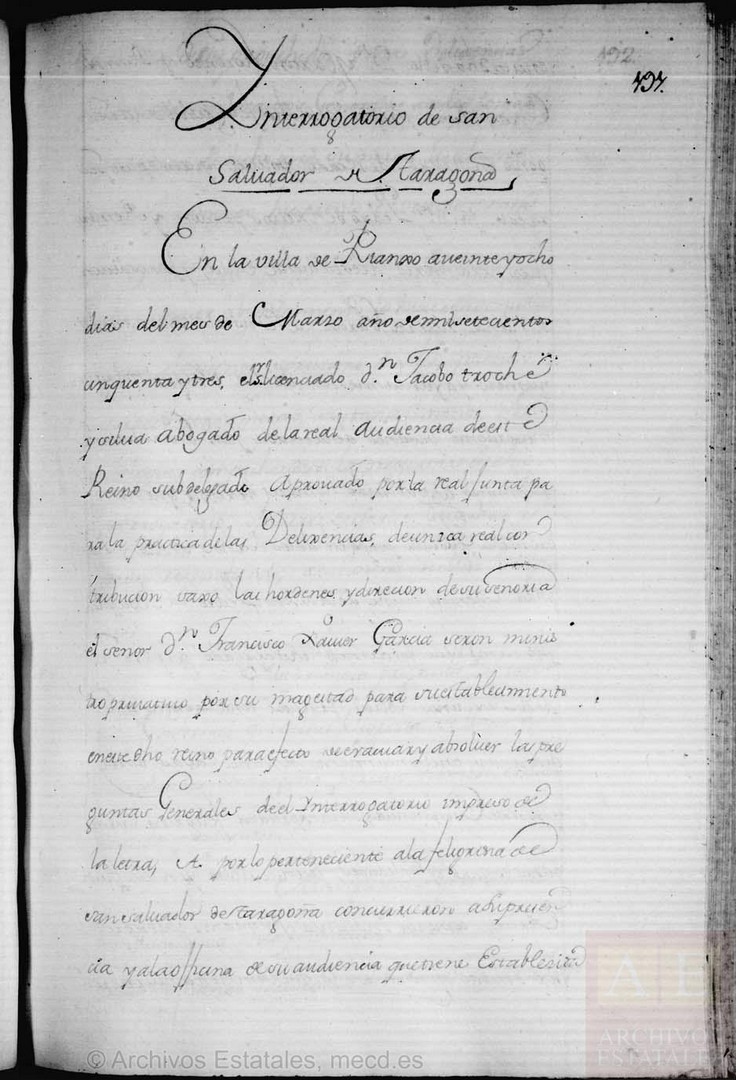 197.
Ynterrogatorio de san
Salvador de Taragoña
En la villa de Rianxo aveinte y ocho
dias del mes de Marzo año de mil setecientos
cinquenta y tres, el sr. licenciado d.n Jacobo troche
y silva abogado de la real audiencia de este
Reino subdelegado aprouado por la real Junta pa
ra la practica de las Delixencias, de unica real con
tribucion vaxo las hordenes, y direcion de su señoria
el señor d.n Francisco Xauier Garcia seron minis
tro priuatiuo por su magestad para su establecimiento
en este dho reino para efecto de euacuar y absoluer las pre
guntas Generales de el Ynterrogatorio impreso de
la letra, A. por lo perteneciente a la feligresia de
san saluador de taragoña concurrieron a su presen
cia y a la officina de su audiencia que tiene Establezida
© Archivos Estatales, mecd.es
AE
ARCHIVO
ESTATALE